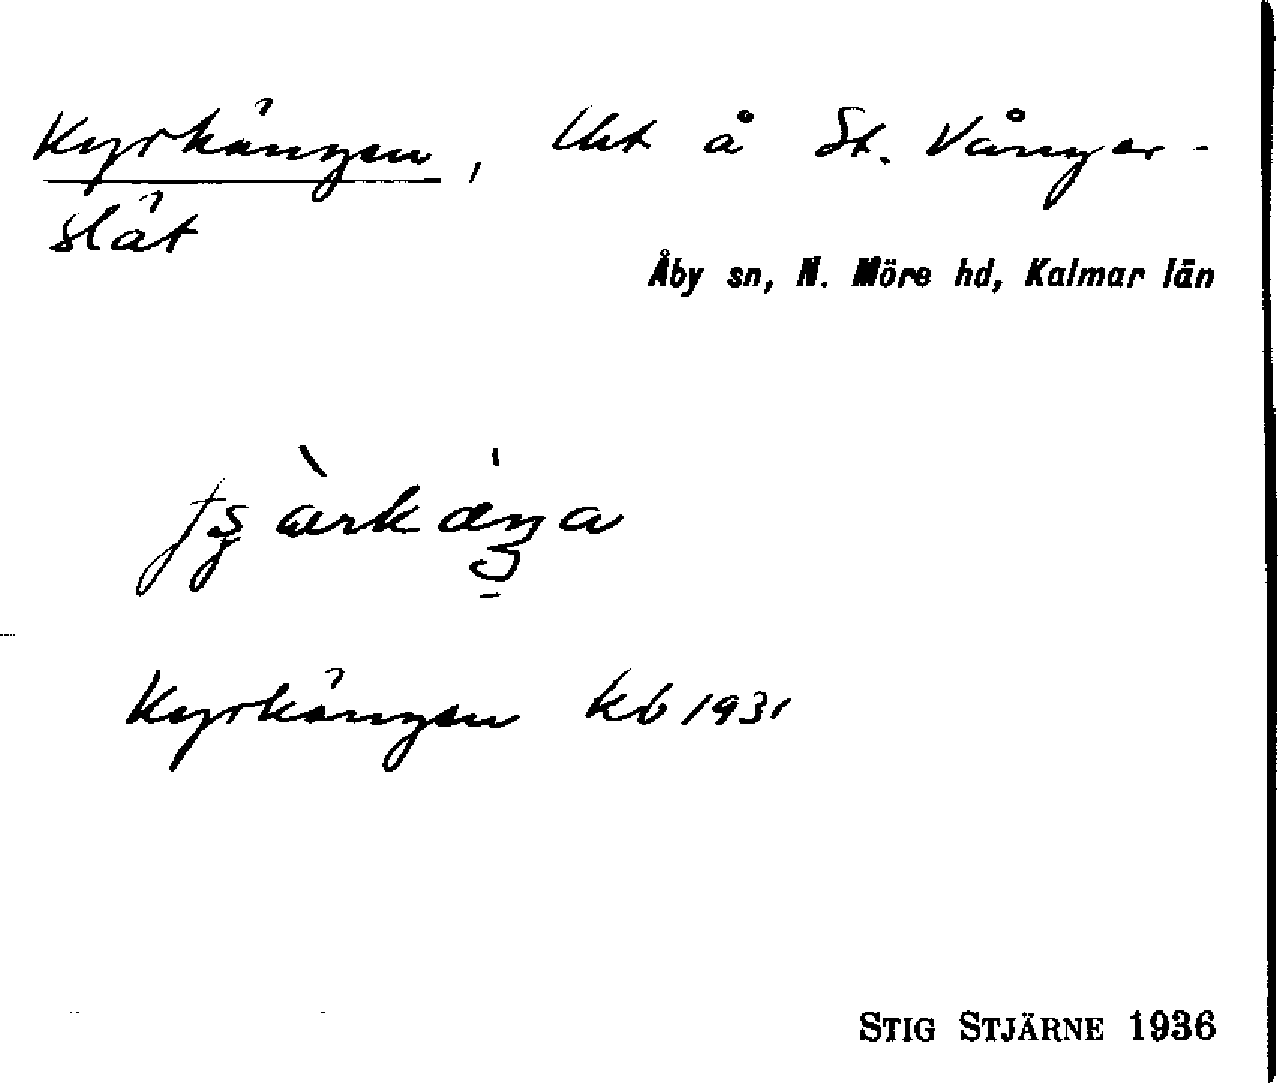 Kyrkängen, lht å St. Vånger-
slät
Åby sn, N. Möre hd, Kalmar län
Kyrkängen kb 1931
STIG STJÄRNE 1936